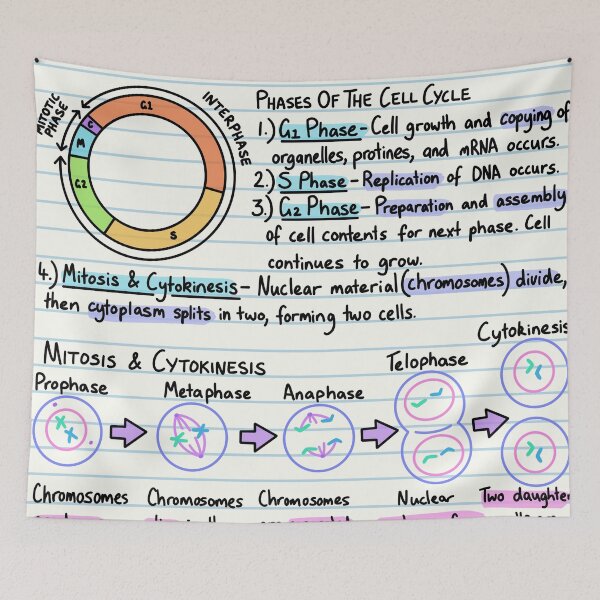 MITOTIC
PHASE
INTERPHASE
G1
C
M
G2
S
PHASES OF THE CELL CYCLE
1.) G1 Phase - Cell growth and copying of
organelles, protines, and mRNA occurs.
2.) S Phase - Replication of DNA occurs.
3.) G2 Phase - Preparation and assembly
of cell contents for next phase. Cell
continues to grow.
4.) Mitosis & Cytokinesis - Nuclear material (chromosomes) divide,
then cytoplasm splits in two, forming two cells.
MITOSIS & CYTOKINESIS
Prophase
Metaphase
Anaphase
Telophase
Cytokinesis
Chromosomes
Chromosomes
Chromosomes
Nuclear
Two daughter